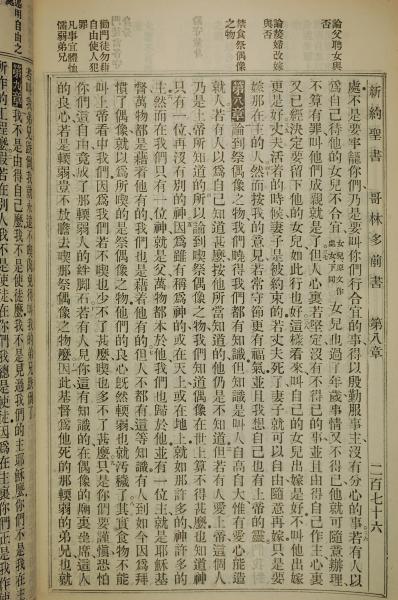 新約聖書 哥林多前書 第八章 二百七十六
論父聘女與
否
論嫠婦改嫁
與否
禁食祭偶像
之物
勸門徒勿藉
自由使人犯
凡事宜體恤
懦弱弟兄
處不是要牢籠你們乃是要叫你們行合宜的事得以殷勤服事主沒有分心的事若有人以
為自己待他的女兒不合宜女兒原文作處女下同女兒也過了年歲事情又不得已他就可隨意辦理
不算有罪叫他們成親就是了但人心裏若堅定沒有不得已的事並且由得自己作主心裏
又已經決定要留下他的女兒如此行也好這樣看來叫自己的女兒出嫁是好不叫他出嫁
更是好丈夫活着的時候妻子是被約束的若丈夫死了妻子就可以自由隨意再嫁只是要
嫁那在主的人然而按我的意見若常守節更有福氣並且我想自己也有上帝的靈
第八章論到祭偶像之物我們曉得我們都有知識但知識是叫人自高自大惟有愛心能造
就人若有人以為自己知道甚麼按他所當知道的他仍是不知道但若有人愛上帝這個人
乃是上帝所知道的所以論到喫祭偶像之物我們知道偶像在世上算不得甚麼也知道神
只有一位再沒有別的神因為雖有稱為神的或在天上或在地上就如那許多的神許多的
主然而在我們只有一位神就是父萬物都本於他我們也歸於他並有一位主就是耶穌基
督萬物都是藉着他有的我們也是藉着他有的但人不都有這等知識有人到如今因為拜
慣了偶像就以為所喫的是祭偶像之物他們的良心既然輭弱也就污穢了其實食物不能
叫上帝看中我們因為我們若不喫也少不了甚麼喫也多不了甚麼只是你們要謹慎恐怕
你們這自由竟成了那輭弱人的絆腳石若有人見你這有知識的在偶像的廟裏坐席這人
的良心若是輭弱豈不放膽去喫那祭偶像之物麼因此基督為他死的那輭弱的弟兄也就
第九章我不是自由的麼我不是使徒麼我不是見過我們的主耶穌麼你們不是我在主